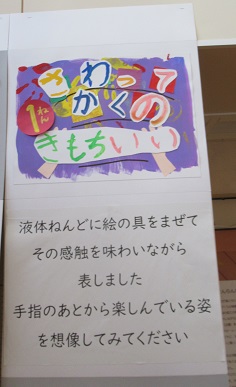 さわって
かくの
1ねん
きもちいい
液体ねんどに絵の具をまぜて
その感触を味わいながら
表しました
手指のあとから楽しんでいる姿
を想像してみてください